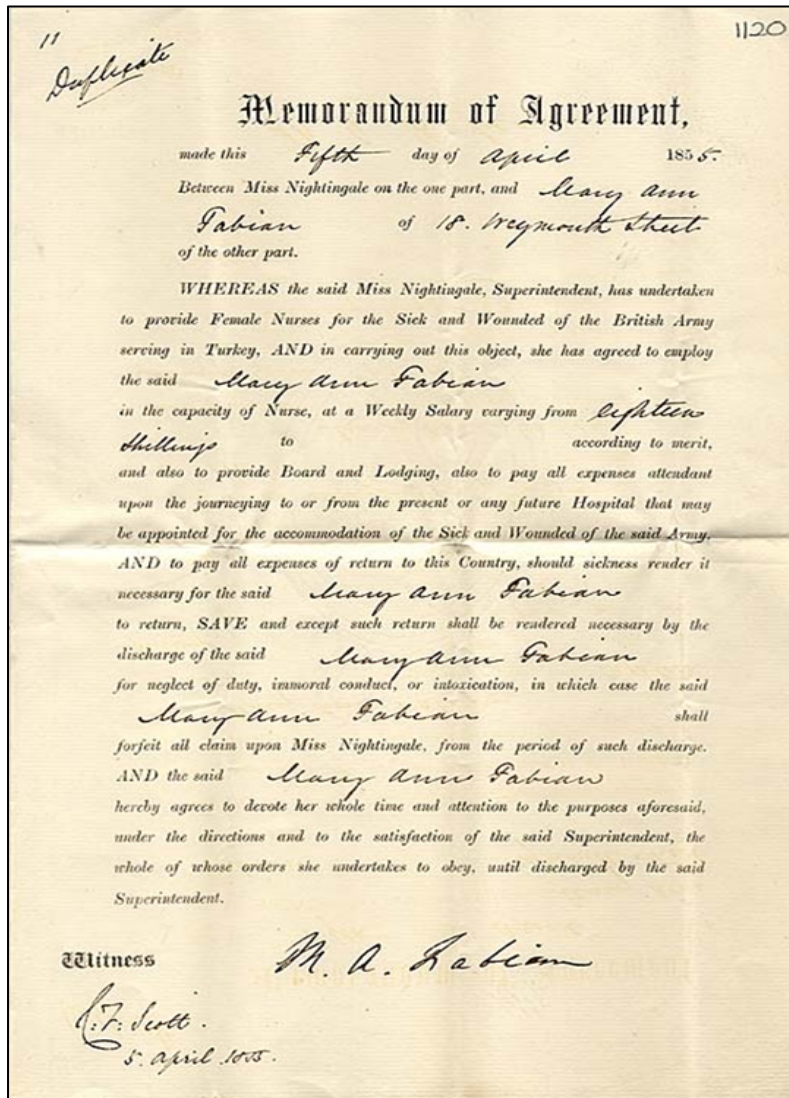 11
1120
Duplicate
Memorandum of Agreement,
made this Fifth day of April 1855.
Between Miss Nightingale on the one part, and Mary Ann
Fabian of 18. Weymouth Street
of the other part.
WHEREAS the said Miss Nightingale, Superintendent, has undertaken
to provide Female Nurses for the Sick and Wounded of the British Army
serving in Turkey, AND in carrying out this object, she has agreed to employ
the said Mary Ann Fabian
in the capacity of Nurse, at a Weekly Salary varying from eighteen
Shillings to according to merit,
and also to provide Board and Lodging, also to pay all expenses attendant
upon the journeying to or from the present or any future Hospital that may
be appointed for the accommodation of the Sick and Wounded of the said Army.
AND to pay all expenses of return to this Country, should sickness render it
necessary for the said Mary Ann Fabian
to return, SAVE and except such return shall be rendered necessary by the
discharge of the said Mary Ann Fabian
for neglect of duty, immoral conduct, or intoxication, in which case the said
Mary Ann Fabian shall
forfeit all claim upon Miss Nightingale, from the period of such discharge.
AND the said Mary Ann Fabian
hereby agrees to devote her whole time and attention to the purposes aforesaid,
under the directions and to the satisfaction of the said Superintendent, the
whole of whose orders she undertakes to obey, until discharged by the said
Superintendent.
Witness M. A. Fabian
Scott.
5. April 1855.